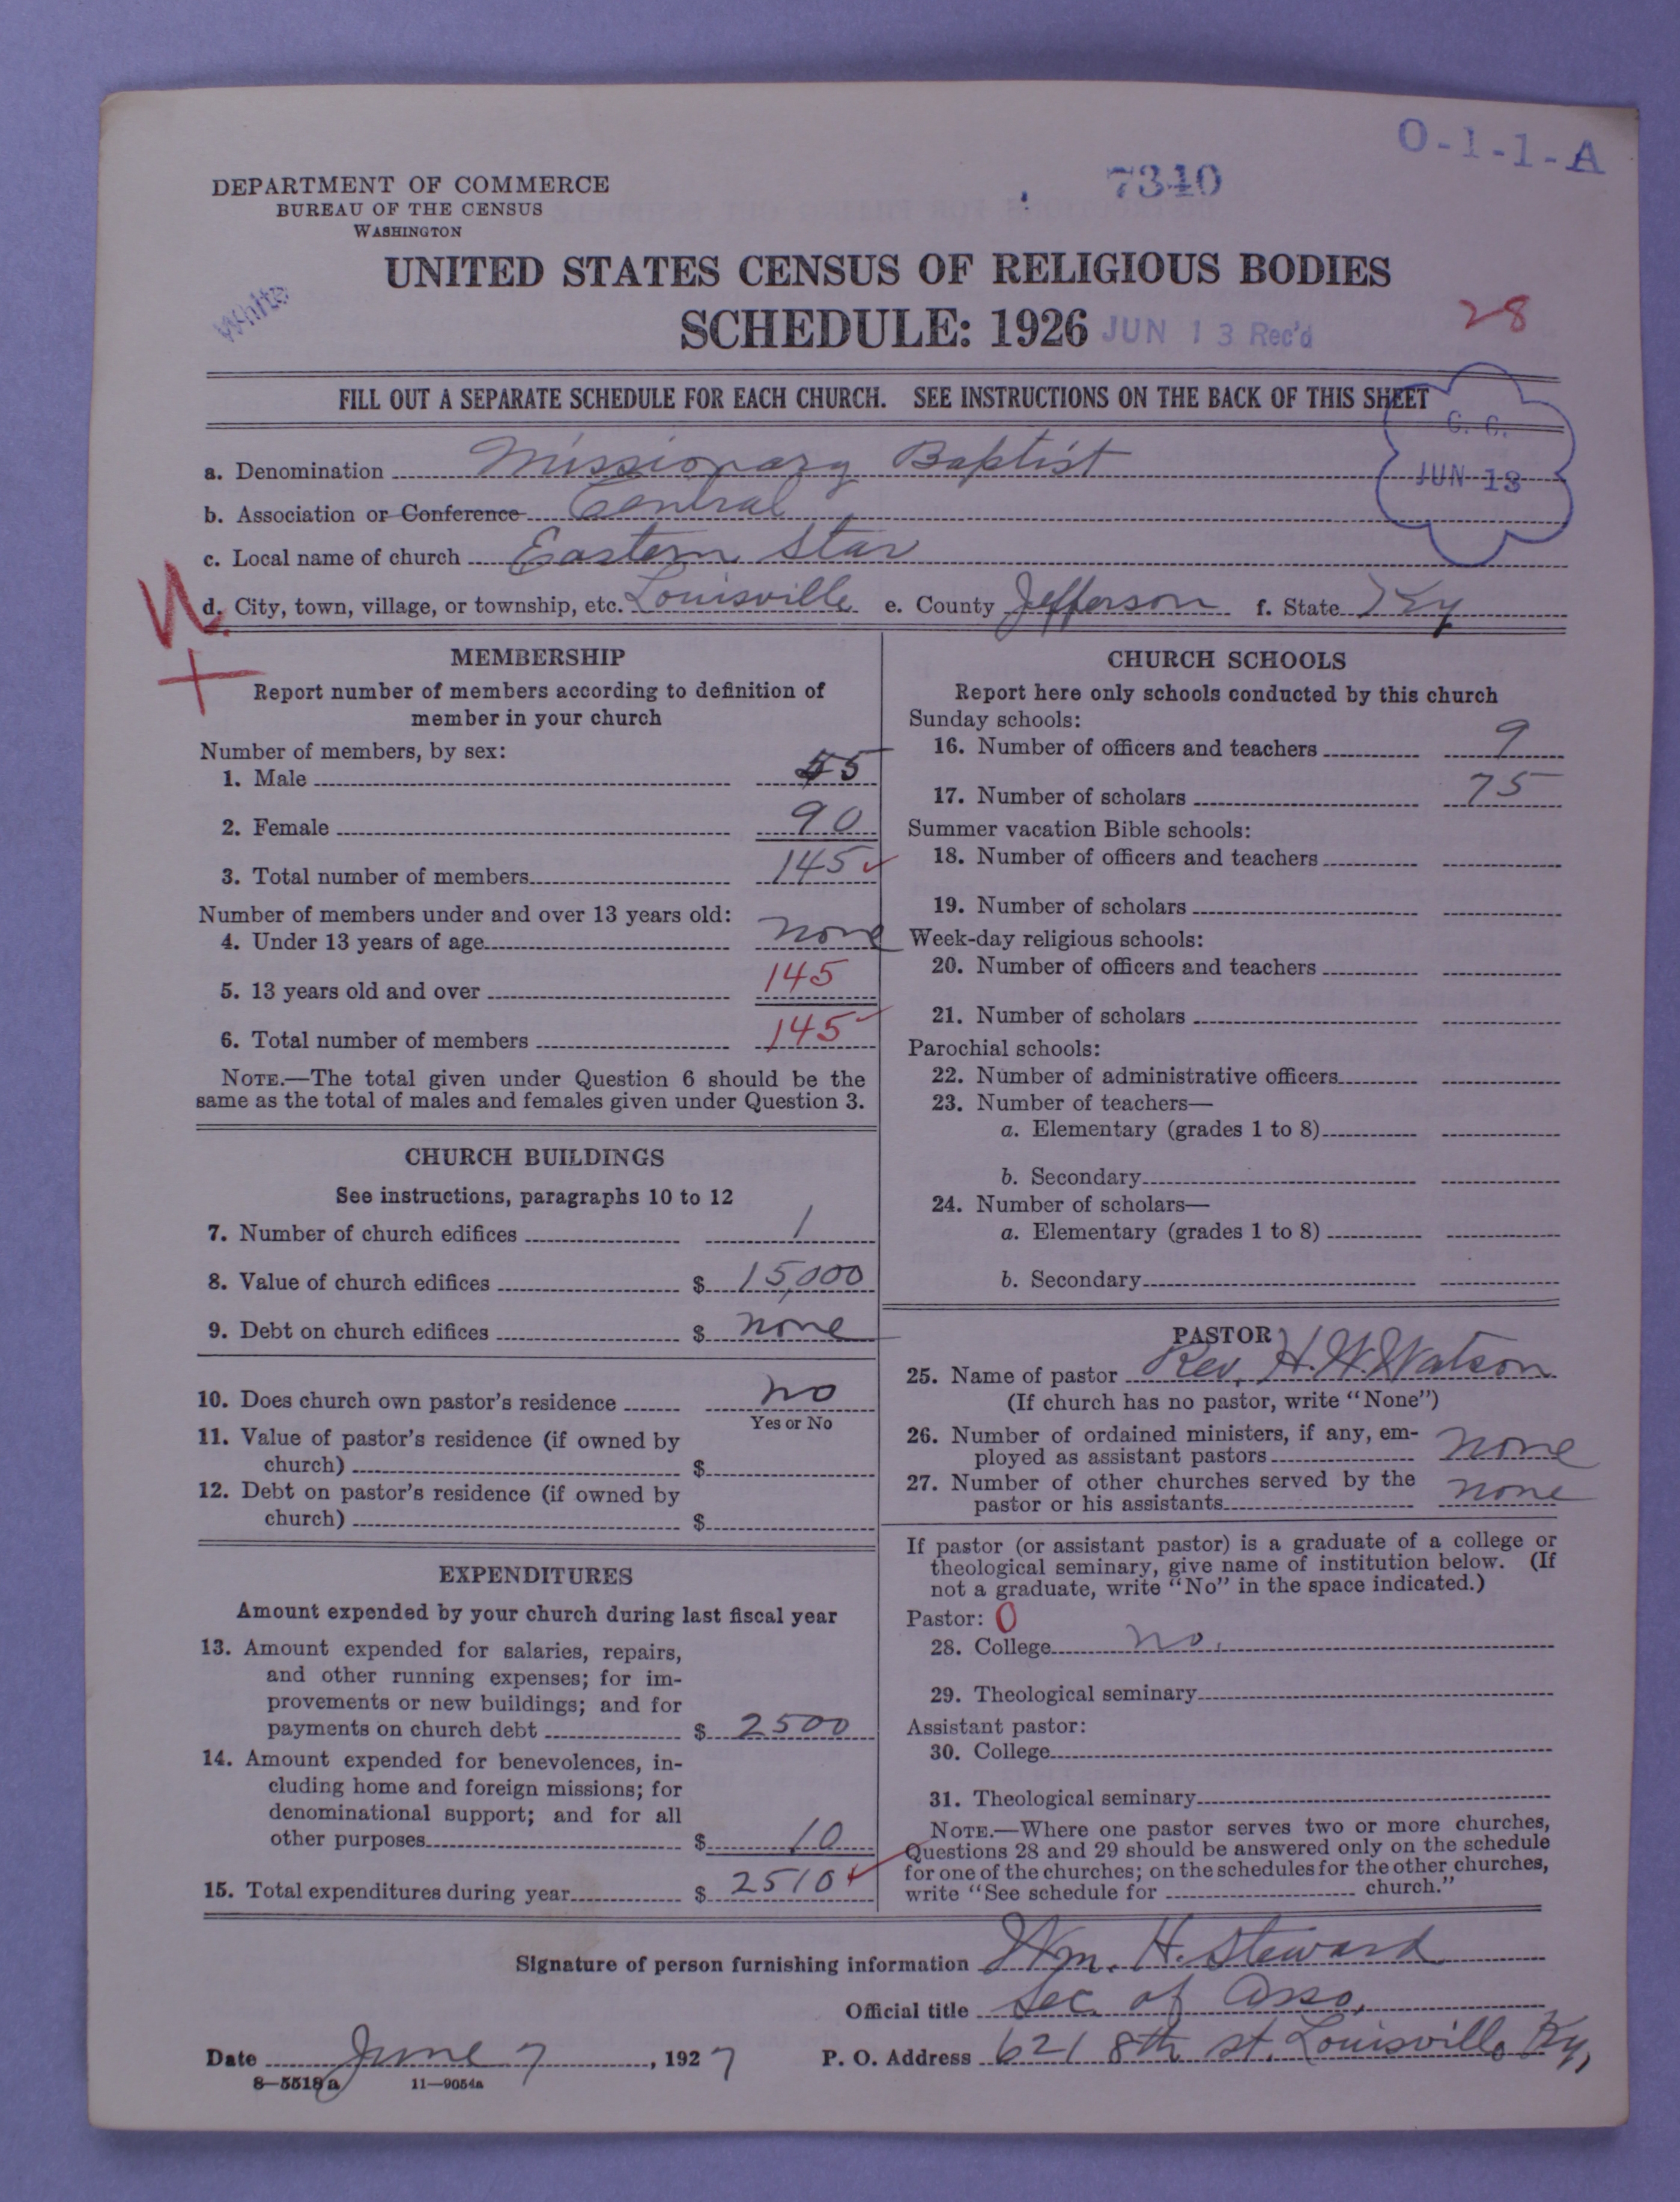 O-1-1-A
7340
DEPARTMENT OF COMMERCE
BUREAU OF THE CENSUS
WASHINGTON
UNITED STATES CENSUS OF RELIGIOUS BODIES
White
SCHEDULE: 1926 JUN 13 Rec'd
28
FILL OUT A SEPARATE SCHEDULE FOR EACH CHURCH. SEE INSTRUCTIONS ON THE BACK OF THIS SHEET
C. C.
JUN 13
a. Denomination Missionary Baptist
b. Association or Conference Central
c. Local name of church Eastern Star
d. City, town, village, or township, etc. Louisville e. County Jefferson f. State Ky
MEMBERSHIP
Report number of members according to definition of
member in your church
Number of members, by sex:
1. Male 55
2. Female 90
3. Total number of members 145
Number of members under and over 13 years old:
4. Under 13 years of age none
5. 13 years old and over 145
6. Total number of members 145
NOTE.—The total given under Question 6 should be the
same as the total of males and females given under Question 3.
CHURCH BUILDINGS
See instructions, paragraphs 10 to 12
7. Number of church edifices 1
8. Value of church edifices $ 15,000
9. Debt on church edifices $ none
10. Does church own pastor's residence no
Yes or No
11. Value of pastor's residence (if owned by
church) $
12. Debt on pastor's residence (if owned by
church) $
EXPENDITURES
Amount expended by your church during last fiscal year
13. Amount expended for salaries, repairs,
and other running expenses; for im-
provements or new buildings; and for
payments on church debt $ 2500
14. Amount expended for benevolences, in-
cluding home and foreign missions; for
denominational support; and for all
other purposes $ 10
15. Total expenditures during year $ 2510
CHURCH SCHOOLS
Report here only schools conducted by this church
Sunday schools:
16. Number of officers and teachers 9
17. Number of scholars 75
Summer vacation Bible schools:
18. Number of officers and teachers
19. Number of scholars
Week-day religious schools:
20. Number of officers and teachers
21. Number of scholars
Parochial schools:
22. Number of administrative officers
23. Number of teachers—
a. Elementary (grades 1 to 8)
b. Secondary
24. Number of scholars—
a. Elementary (grades 1 to 8)
b. Secondary
PASTOR
25. Name of pastor Rev. H. W. Watson
(If church has no pastor, write "None")
26. Number of ordained ministers, if any, em-
ployed as assistant pastors none
27. Number of other churches served by the
pastor or his assistants none
If pastor (or assistant pastor) is a graduate of a college or
theological seminary, give name of institution below. (If
not a graduate, write "No" in the space indicated.)
Pastor: 0
28. College no.
29. Theological seminary
Assistant pastor:
30. College
31. Theological seminary
NOTE.—Where one pastor serves two or more churches,
Questions 28 and 29 should be answered only on the schedule
for one of the churches; on the schedules for the other churches,
write "See schedule for church."
Signature of person furnishing information Wm. H. Steward
Official title Sec. of Asso.
Date June 7, 1927 P. O. Address 621 8th st. Louisville Ky,
8-5518a 11-9054a